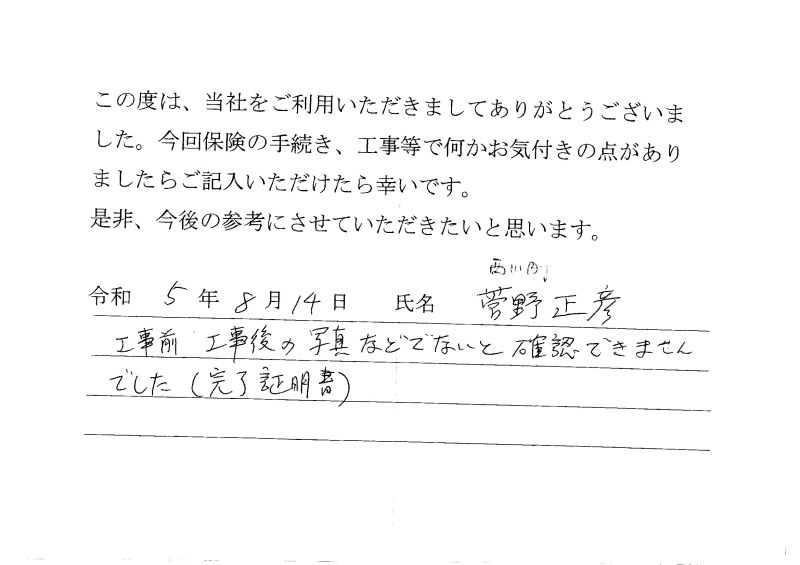 この度は、当社をご利用いただきましてありがとうございま
した。今回保険の手続き、工事等で何かお気付きの点があり
ましたらご記入いただけたら幸いです。
是非、今後の参考にさせていただきたいと思います。
西川町
令和 5 年 8 月 14 日 氏名 菅野正彦
工事前 工事後の写真などでないと確認できません
でした(完了証明書)